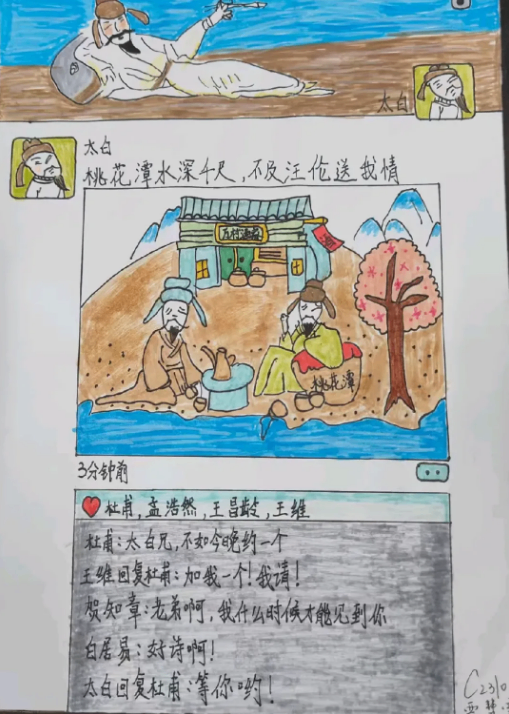 太白
太白
桃花潭水深千尺，不及汪伦送我情
万村酒家
酒
桃花潭
3分钟前
杜甫，孟浩然，王昌龄，王维
杜甫：太白兄，不如今晚约一个
王维回复杜甫：加我一个！我请！
贺知章：老弟啊，我什么时候才能见到你
白居易：好诗啊！
太白回复杜甫：等你哟！
C2310